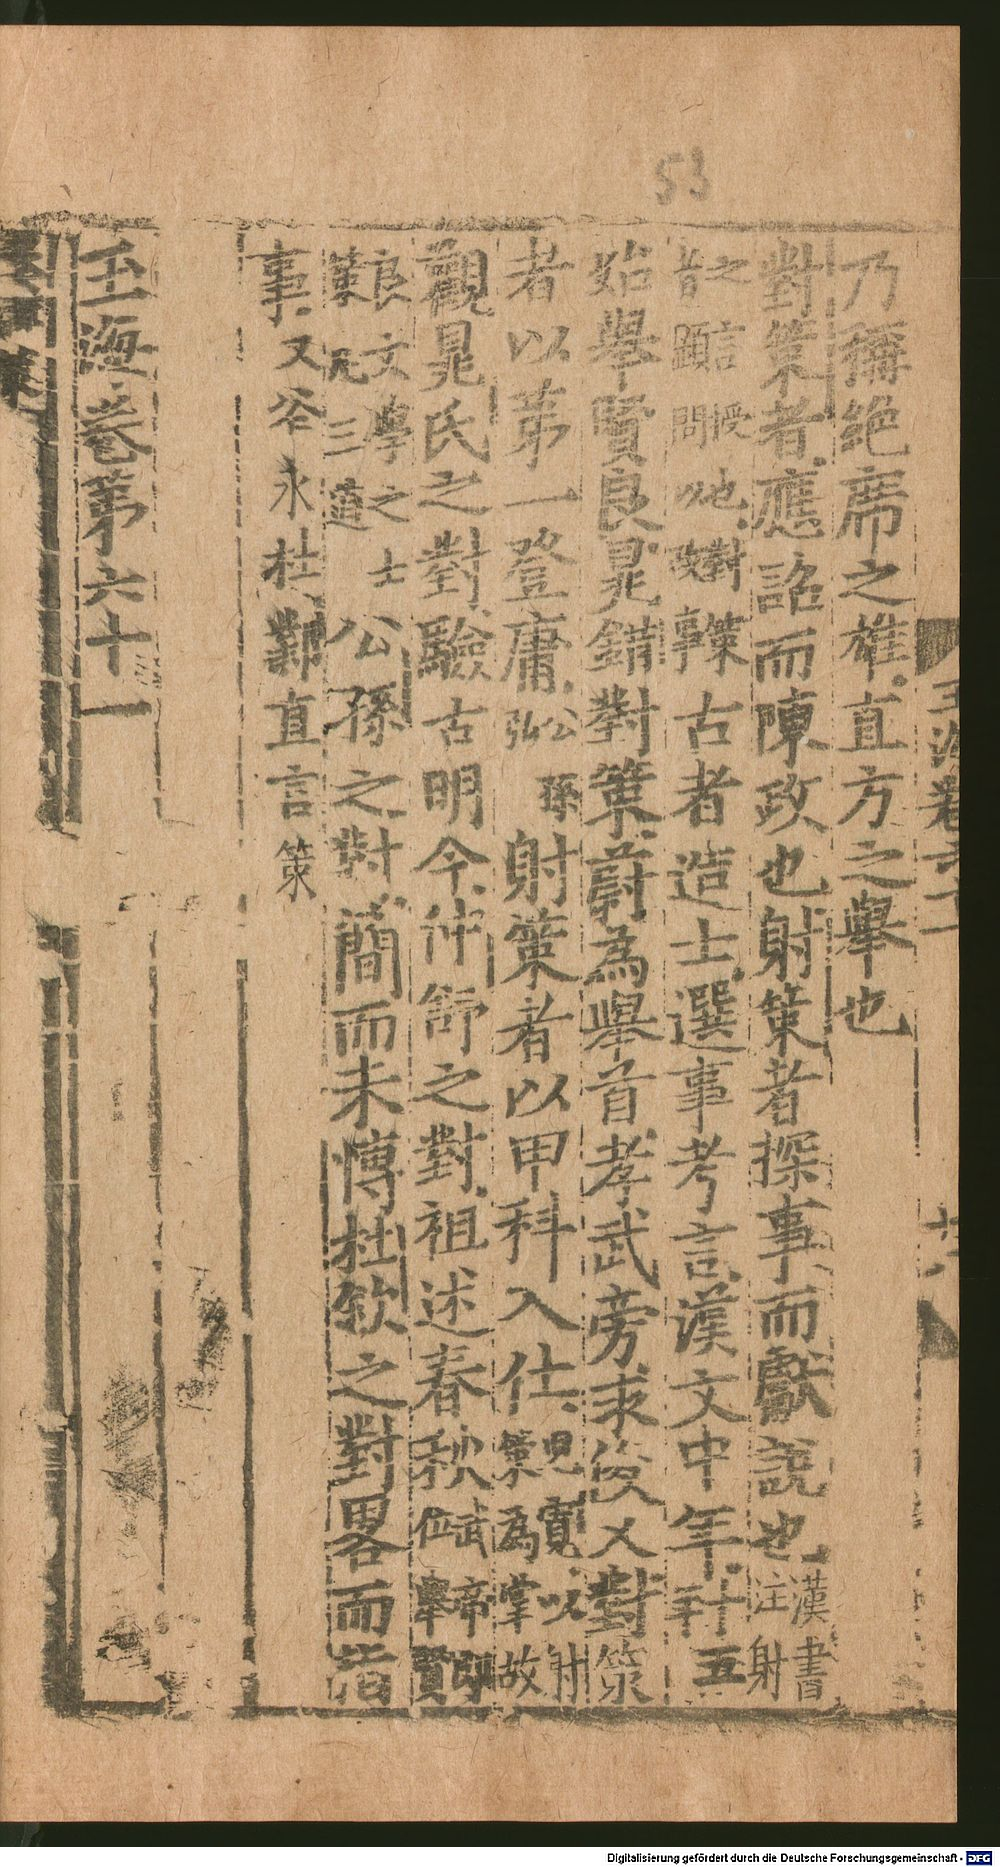 53
玉海卷六十一
乃稱絕席之雄直方之舉也
對策者應詔而陳政也射策者探事而獻說也漢書注射
之言授也對策
昔顯問以政事古者造士選事考言漢文中年十五年
始舉賢良晁錯對策蔚為舉首孝武旁求俊乂對策
者以第一登庸公孫弘射策者以甲科入仕兒寬以射策為掌故
觀晁氏之對驗古明今仲舒之對祖述春秋武帝即位舉賢
良文學之士策凡三道公孫之對簡而未博杜欽之對畧而指
事又谷永杜鄴直言策
玉海卷第六十一
Digitalisierung gefördert durch die Deutsche Forschungsgemeinschaft - DFG